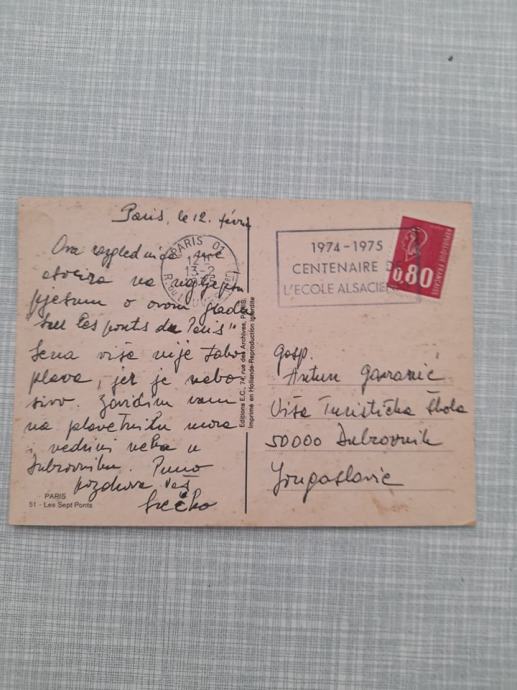 Paris, le 12. févri
Ova razglednica me
asocira na najljepšu
pjesmu o ovom gradu
"Sur les ponts de Paris"
Sena više nije tako
plava, jer je nebo
sivo. Zavidim vam
na plavetnilu mora
i vedrini neba u
Dubrovniku. Puno
pozdrava Vaš
Srećko
PARIS
51 - Les Sept Ponts
Editions E.C., 74, rue des Archives, PARIS
Imprimé en Hollande-Reproduction interdite
PARIS 01
13-2
1974-1975
CENTENAIRE DE
L'ECOLE ALSACIEN
0,80
REPUBLIQUE FRANÇAISE
gosp.
Antun
Viša Turistička škola
50000 Dubrovnik
Yougoslavie